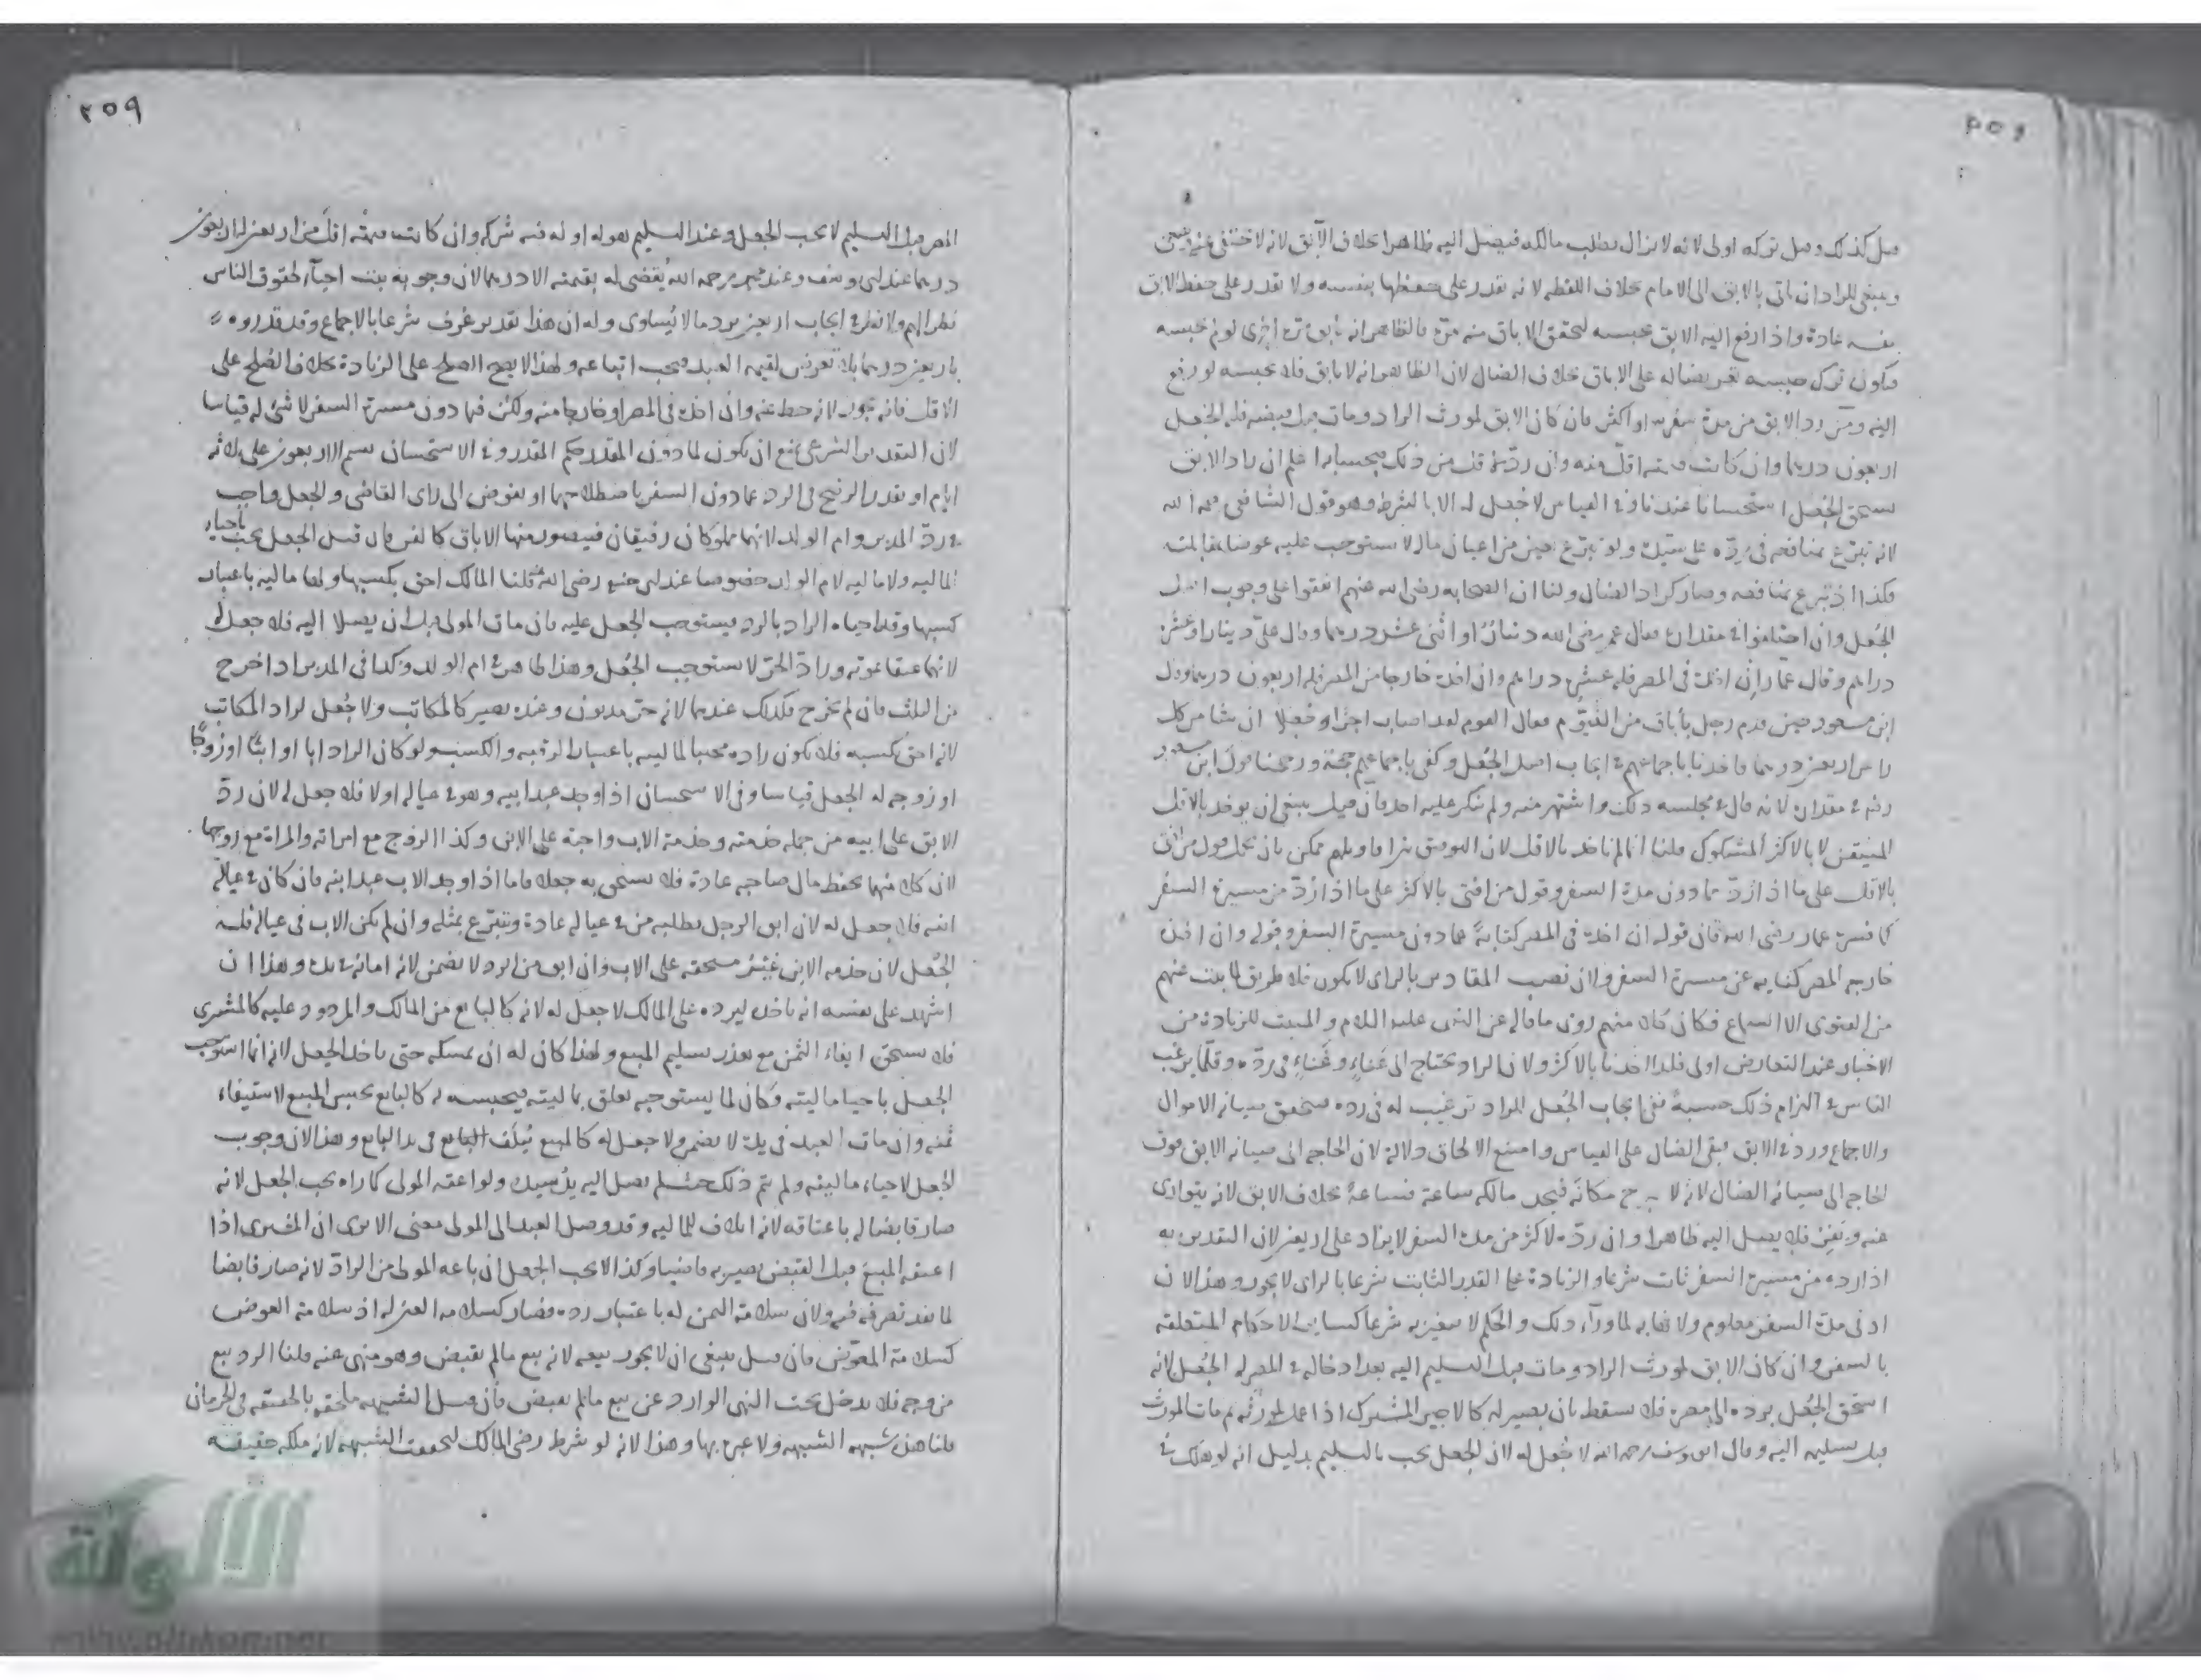 قيل كذلك وقيل تركه اولى لانه لا يزال يطلب مالكه فيصل اليه ظاهرا بخلاف الآبق لانه لا
وينبغي للراد ان ياتي بالابق الى الامام بخلاف اللقطه لانه يقدر على حفظها بنفسه ولا يقدر على حفظ الابق
بنفسه عادة واذا رفع اليه الابق يحبسه لتحقق الاباق منه مرة فالظاهر انه يأبق مرة اخرى لو لم يحبسه
فيكون ترك حبسه تعريضا له على الاباق بخلاف الضال لان الظاهر انه لا يابق فلا يحبسه لو رفع
اليه ومن رد الابق من مدة سفر او اكثر فان كان الابق لمورث الراد ومات قبل قبضه فله الجعل
اربعون درهما وان كانت قيمته اقل منه وان رده لاقل من ذلك فبحسابه اعلم ان راد الابق
يستحق الجعل استحسانا عندنا وفي القياس لا جعل له الا بالشرط وهو قول الشافعي رحمه الله
لانه تبرع بمنافعه في رده على سيده ولو تبرع بعين من اعيان ماله لا يستوجب عليه عوضا بمقابلته
فكذا اذا تبرع بمنافعه وصار كراد الضال ولنا ان الصحابه رضي الله عنهم اتفقوا على وجوب اصل
الجعل وان اختلفوا في مقداره فقال عمر رضي الله دينار او اثنى عشر درهما وقال علي دينار او عشرة
دراهم وقال عمار ان اخذه في المصر فله عشرة دراهم وان اخذه خارجا من المصر فله اربعون درهما وقال
ابن مسعود حين قدم رجل بأباق من الفيوم فقال القوم لقد اصاب اجرا وجعلا ان شا من كل
راس اربعين درهما فاخذنا باجماعهم في ايجاب اصل الجعل وكفى باجماعهم حجة ورجحنا قول ابن مسعود
رضه في مقداره لانه قال في مجلسه ذلك واشتهر منه ولم ينكر عليه احد فان قيل ينبغي ان يوخذ بالاقل
المتيقن لا بالاكثر المشكوك قلنا انما لم ناخذ بالاقل لان التوفيق بين اقاويلهم ممكن بان يحمل قول من افتى
بالاقل على ما اذا رد مما دون مدة السفر وقول من افتى بالاكثر على ما اذا رد من مسيرة السفر
كما فسره عمار رضي الله فان قوله ان اخذه في المصر كناية عما دون مسيرة السفر وقوله وان اخذه
خارج المصر كنايه عن مسيرة السفر ولان نصب المقادير بالراي لا يكون فلا طريق لما ثبت عنهم
من الفتوى الا السماع فكان كلا منهم روى ما قاله عن النبي عليه السلام والمثبت للزيادة من
الاخبار عند التعارض اولى فلذا اخذنا بالاكثر ولان الراد يحتاج الى عناء وعناء في رده وقلما يرغب
الناس في التزام ذلك حسبة ففي ايجاب الجعل للراد ترغيب له في رده فيتحقق صيانه الاموال
والاجماع ورد في الابق فبقى الضال على القياس وامتنع الالحاق دلالة لان الحاجه الى صيانه الابق فوق
الحاجه الى صيانه الضال لانه لا يبرح مكانه فيجده مالكه ساعة فساعة بخلاف الابق لانه يتوارى
عنه ويفر فلا يصل اليه ظاهرا وان رده لاكثر من مدة السفر لا يزاد على اربعين لان التقدير به
اذا رده من مسيرة السفر ثابت شرعا والزيادة على القدر الثابت شرعا بالراي لا يجوز وهذا لان
ادنى مدة السفر معلوم ولا نهايه لما وراء ذلك والحكم لا يتغير به شرعا كساير الاحكام المتعلقه
بالسفر وان كان الابق لمورث الراد ومات قبل التسليم اليه بعد ادخاله في المصر له الجعل لانه
استحق الجعل برده الى مصره فلا يسقط بان يصير له كالاجير المشترك اذا عمل لمورثه ثم مات المورث
قبل تسليمه اليه وقال ابو يوسف رحمه الله لا جعل له لان الجعل يجب بالتسليم بدليل انه لو هلك في
المصر قبل التسليم لا يجب الجعل وعند التسليم هو له او له فيه شركه وان كانت قيمته اقل من اربعين له اربعون
درهما عند ابي يوسف وعند محمد رحمه الله يقضى له بقيمته الا درهما لان وجوبه ثبت احياء لحقوق الناس
نظرا لهم ولا نظر في ايجاب اربعين برد ما لا يساوى وله ان هذا تقدير عرف شرعا بالاجماع وقد قدروه
باربعين درهما بلا تعرض لقيمه العبد فيجب اتباعه ولهذا لا يصح الصلح على الزيادة بخلاف الصلح على
الاقل فانه يجوز لانه حط عنه وان اخذه في المصر او خارجا منه ولكن فيما دون مسيرة السفر لا شئ له قياسا
لان التقدير الشرعي يمنع ان يكون لما دون المقدر حكم المقدر وفي الاستحسان يقسم الاربعون على ثلاثه
ايام او يقدر الرضخ في الرد عما دون السفر باصطلاحهما او يفوض الى راى القاضى والجعل واجب
في رد المدبر وام الولد لانهما مملوكان رقيقان فيتصور منهما الاباق كالقن فان قيل الجعل يجب باحياء
الماليه ولا ماليه لام الولد خصوصا عند ابي حنيفه رضي الله عنه قلنا المالك احق بكسبها ولها ماليه باعتبار
كسبها وقد احياه الراد بالرد فيستوجب الجعل عليه فان مات المولى قبل ان يصلا اليه فلا جعل له
لانهما عتقا بموته وراد الحر لا يستوجب الجعل وهذا ظاهر في ام الولد وكذا في المدبر اذا خرج
من الثلث فان لم يخرج فكذلك عندهما لانه حر مديون وعنده يصير كالمكاتب ولا جعل لراد المكاتب
لانه احق بكسبه فلا يكون راده محييا لماليه باعتبار الرقبه والكسب ولو كان الراد ابا او ابنا او زوجا
او زوجه له الجعل قياسا وفي الاستحسان اذا وجد عبد ابيه وهو في عياله اولا فلا جعل له لان رد
الابق على ابيه من جمله خدمته وخدمة الاب واجبة على الابن وكذا الزوج مع امراته والمراة مع زوجها
لان كلا منهما يحفظ مال صاحبه عادة فلا يستحق به جعلا فاما اذا وجد الاب عبد ابنه فان كان في عيال
ابنه فلا جعل له لان ابق الرجل يطلبه من في عياله عادة ويتبرع بمثله وان لم يكن الاب في عياله فله
الجعل لان خدمه الابن غير مستحقه على الاب وان ابق من الراد لا يضمن لانه امانه في يده وهذا ان
اشهد على نفسه انه ياخذه ليرده على المالك لا جعل له لانه كالبايع من المالك والمردود عليه كالمشترى
فلا يستحق ايفاء الثمن مع تعذر تسليم المبيع ولهذا كان له ان يمسكه حتى ياخذ الجعل لانه انما استوجب
الجعل باحيا ماليته فكان لما يستوجبه تعلق بماليته فيحبسه له كالبايع يحبس المبيع لاستيفاء
ثمنه وان مات العبد في يده لا يضمن ولا جعل له كالمبيع يتلف في يد البايع وهذا لان وجوب
الجعل لاحياء ماليته ولم يتم ذلك حين لم يصل اليه يد سيده ولو اعتقه المولى كما راه يجب الجعل لانه
صار قابضا له باعتاقه لانه اتلاف للماليه وقد وصل العبد الى المولى معنى الا يرى ان المشترى اذا
اعتق المبيع قبل القبض يصير به قابضا وكذا لا يجب الجعل ان باعه المولى من الراد لانه صار قابضا
لما نفذ تصرفه فيه ولان سلامة الثمن له باعتبار رده فصار كسلامه العين له اذ سلامة العوض
كسلامة المعوض فان قيل ينبغي ان لا يجوز بيعه لانه بيع مالم يقبض وهو منهى عنه قلنا الرد بيع
من وجه فلا يدخل تحت النهى الوارد عن بيع مالم يقبض فان قيل الشبهه ملحقه بالحقيقه في الحرمان
قلنا هذه شبهه الشبهه ولا عبرة بها وهذا لانه لو شرط رضى المالك لتحققت الشبهه لانه ملكه حقيقه